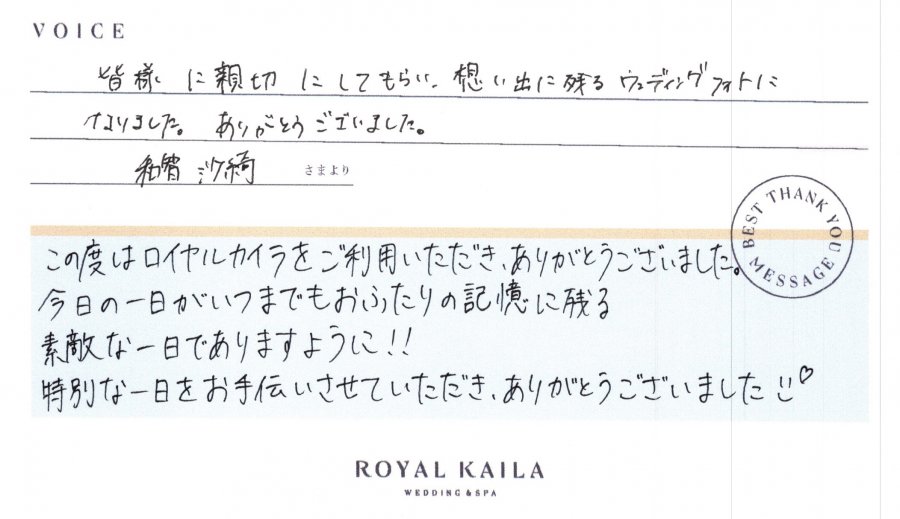 VOICE
皆様に親切にしてもらい、想い出に残るウェディングフォトに
なりました。ありがとうございました。
和智 沙綺 さまより
BEST THANK YOU MESSAGE
この度はロイヤルカイラをご利用いただき、ありがとうございました。
今日の一日がいつまでもおふたりの記憶に残る
素敵な一日でありますように!!
特別な一日をお手伝いさせていただき、ありがとうございました
ROYAL KAILA
WEDDING & SPA